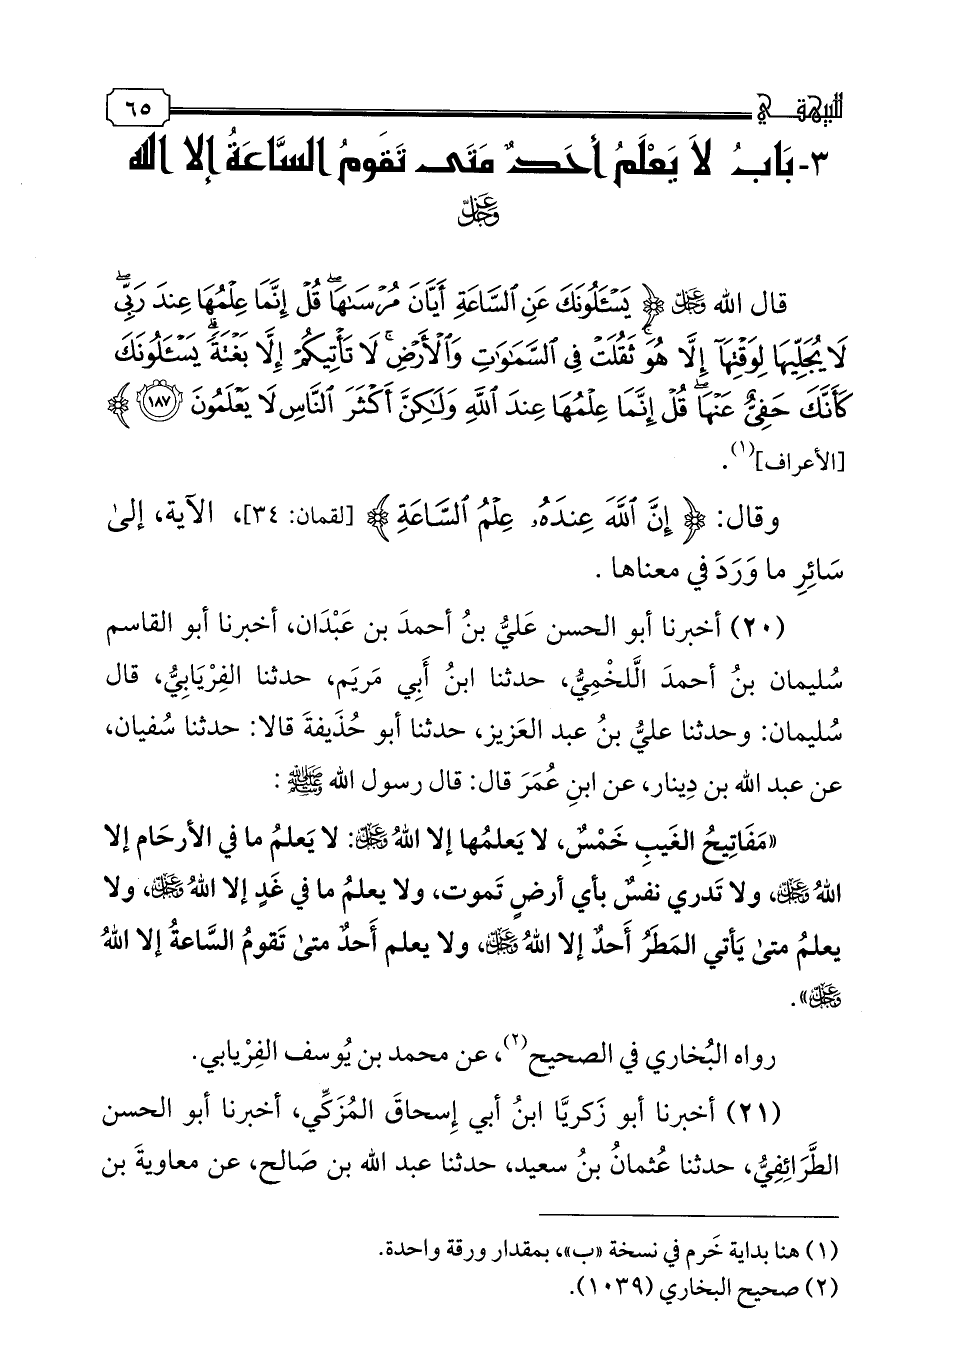 للبيهقي
٦٥
٣- بَابُ لاَ يَعْلَمُ أحَدٌ مَتَى تَقومُ السَّاعَةُ إلا الله
عَزَّ وَجَلَّ
قال الله عَزَّ وَجَلَّ ﴿ يَسْـَٔلُونَكَ عَنِ ٱلسَّاعَةِ أَيَّانَ مُرْسَىٰهَا ۖ قُلْ إِنَّمَا عِلْمُهَا عِندَ رَبِّى ۖ
لَا يُجَلِّيهَا لِوَقْتِهَآ إِلَّا هُوَ ۚ ثَقُلَتْ فِى ٱلسَّمَـٰوَٰتِ وَٱلْأَرْضِ ۚ لَا تَأْتِيكُمْ إِلَّا بَغْتَةً ۗ يَسْـَٔلُونَكَ
كَأَنَّكَ حَفِىٌّ عَنْهَا ۖ قُلْ إِنَّمَا عِلْمُهَا عِندَ ٱللَّهِ وَلَـٰكِنَّ أَكْثَرَ ٱلنَّاسِ لَا يَعْلَمُونَ ١٨٧ ﴾
[الأعراف](١).
وقال: ﴿ إِنَّ ٱللَّهَ عِندَهُۥ عِلْمُ ٱلسَّاعَةِ ﴾ [لقمان: ٣٤]، الآية، إلىٰ
سَائِرِ ما وَرَدَ في معناها .
(٢٠) أخبرنا أبو الحسن عَليُّ بنُ أحمدَ بن عَبْدَان، أخبرنا أبو القاسم
سُليمان بنُ أحمدَ الَّلخْميُّ، حدثنا ابنُ أَبِي مَريَم، حدثنا الفِرْيَابيُّ، قال
سُليمان: وحدثنا عليُّ بنُ عبد العزيز، حدثنا أبو حُذَيفةَ قالا: حدثنا سُفيان،
عن عبد الله بن دِينار، عن ابنِ عُمَرَ قال: قال رسول الله ﷺ :
«مَفَاتِيحُ الغَيبِ خَمْسٌ، لا يَعلمُها إلا اللهُ عَزَّ وَجَلَّ: لا يَعلمُ ما في الأرحَام إلا
اللهُ عَزَّ وَجَلَّ، ولا تَدري نفسٌ بأي أرضٍ تَموت، ولا يعلمُ ما في غَدٍ إلا اللهُ عَزَّ وَجَلَّ، ولا
يعلمُ متىٰ يَأتي المَطَرُ أَحدٌ إلا اللهُ عَزَّ وَجَلَّ، ولا يعلم أَحدٌ متىٰ تَقومُ السَّاعةُ إلا اللهُ
عَزَّ وَجَلَّ».
رواه البُخاري في الصحيح(٢)، عن محمد بن يُوسف الفِرْيابي.
(٢١) أخبرنا أبو زَكريَّا ابنُ أبي إِسحاقَ المُزَكِّي، أخبرنا أبو الحسن
الطَّرَائِفِيُّ، حدثنا عُثمانُ بنُ سعيد، حدثنا عبد الله بن صَالح، عن معاويةَ بن
(١) هنا بداية خَرم في نسخة «ب»، بمقدار ورقة واحدة.
(٢) صحيح البخاري (١٠٣٩).